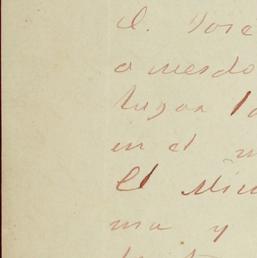 D. José
a mesdo
lugar la
en el m
El Min
ma y